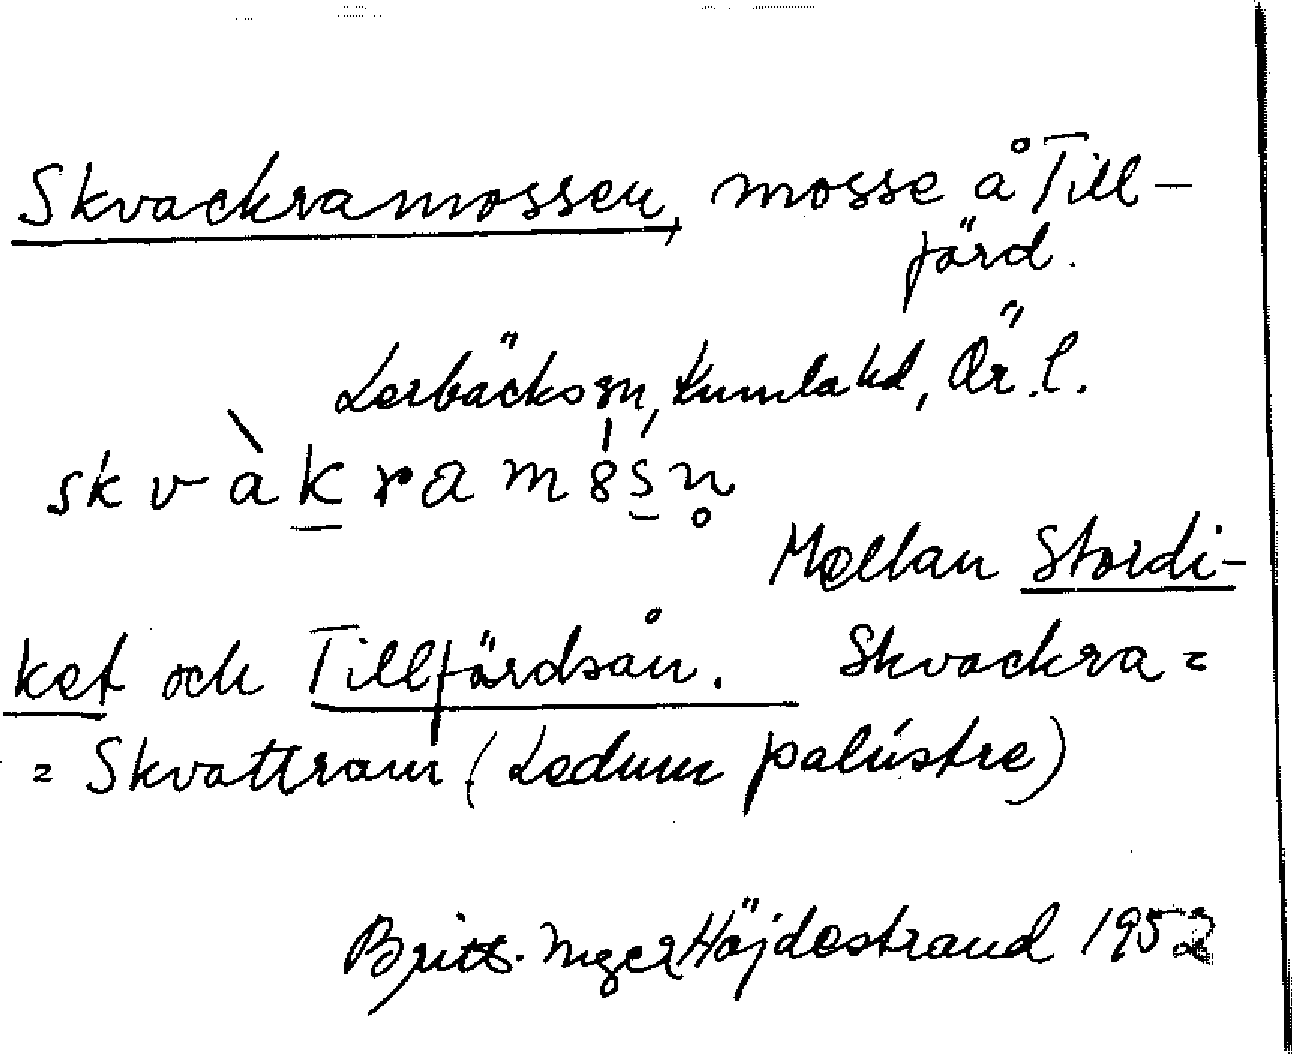 Skvackramossen, mosse å Till-
färd.
Lerbäcks sn, Kumla hd, Ör. l.
skvàkramósn̥
Mellan Stordi-
ket och Tillfärdsån. Skvackra =
= Skvattram (Ledum palústre)
Britt-Inger Höjdestrand 1952